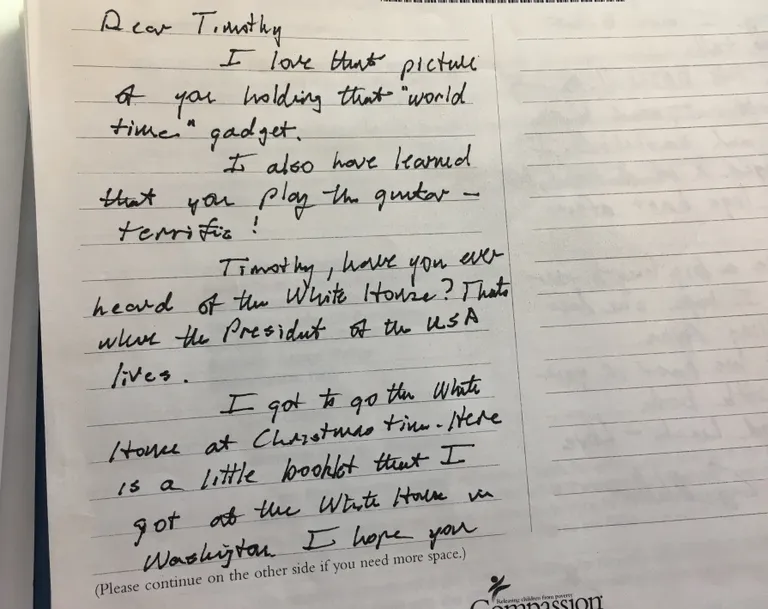 Dear Timothy
I love that picture
of you holding that "world
time" gadget.
I also have learned
that you play the guitar –
terrific!
Timothy, have you ever
heard of the White House? Thats
where the President of the USA
lives.
I got to go the White
House at Christmas time. Here
is a little booklet that I
got at the White House in
Washington. I hope you
(Please continue on the other side if you need more space.)
Releasing children from poverty
Compassion